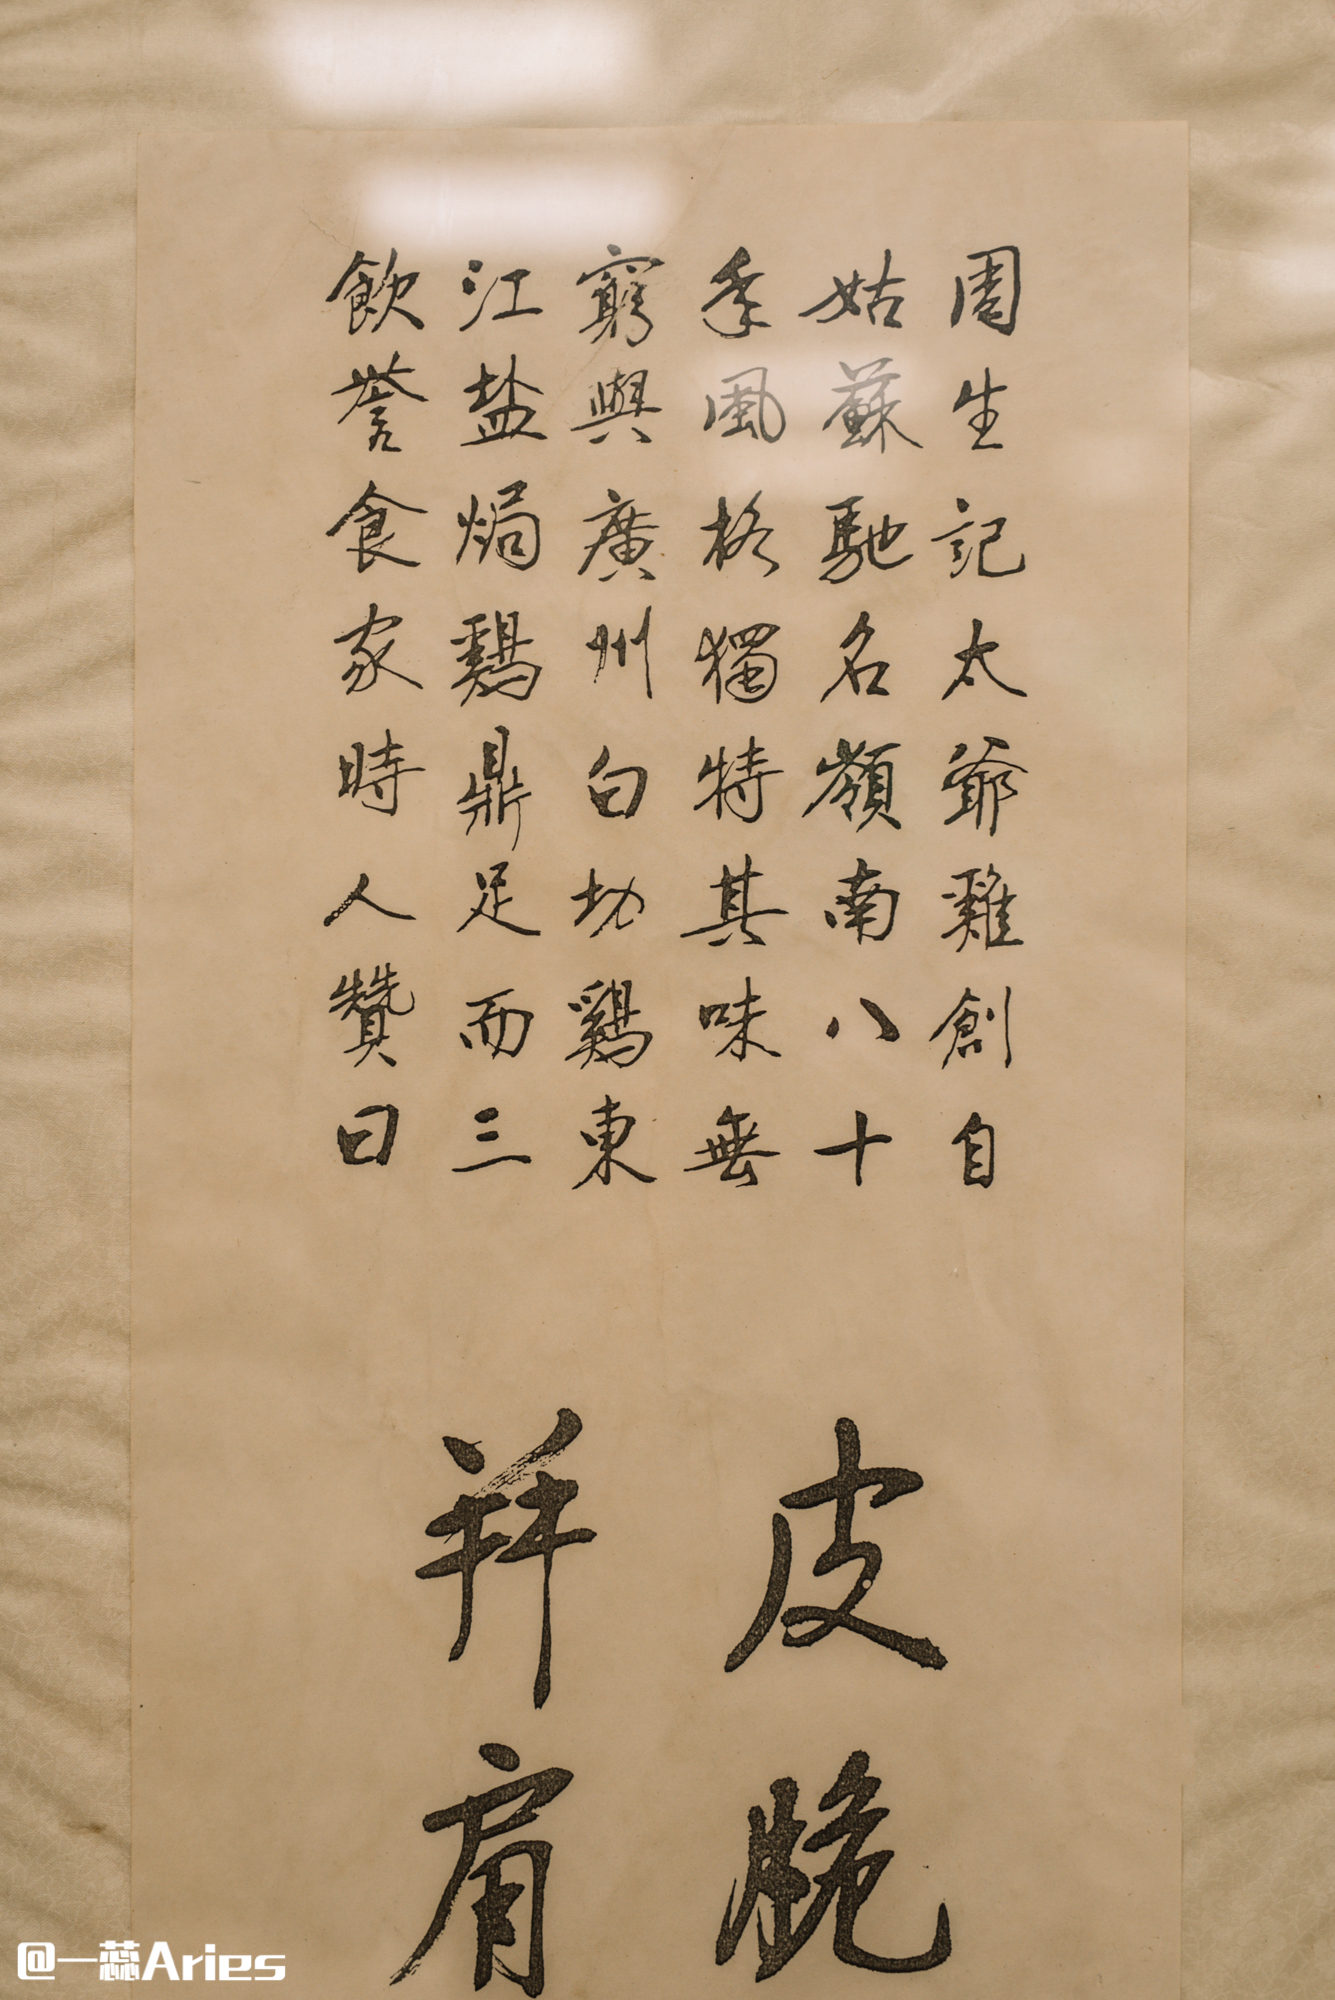 周生記太爺雞創自
姑蘇馳名嶺南八十
季風格獨特其味無
窮與廣州白切鷄東
江盐焗鷄鼎足而三
飲譽食家時人贊曰
皮脆
并肩
@一蕊Aries